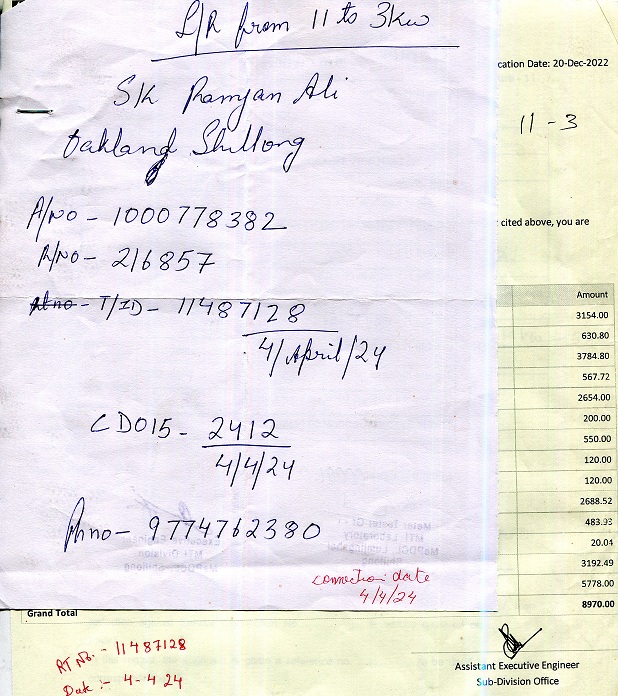 L/R from 11 to 3kw
cation Date: 20-Dec-2022
SK Ramjan Ali
11 - 3
Oakland Shillong
A/NO - 1000778382
cited above, you are
R/NO - 216857
T/ID - 11487128
4/April/24
Amount
3154.00
630.80
3784.80
567.72
2654.00
200.00
550.00
120.00
120.00
2688.52
483.93
20.04
3192.49
5778.00
8970.00
CD015 - 2412
4/4/24
Ph no - 9774762380
connection date
4/4/24
Grand Total
RT No. - 11487128
Date :- 4-4 24
Assistant Executive Engineer
Sub-Division Office